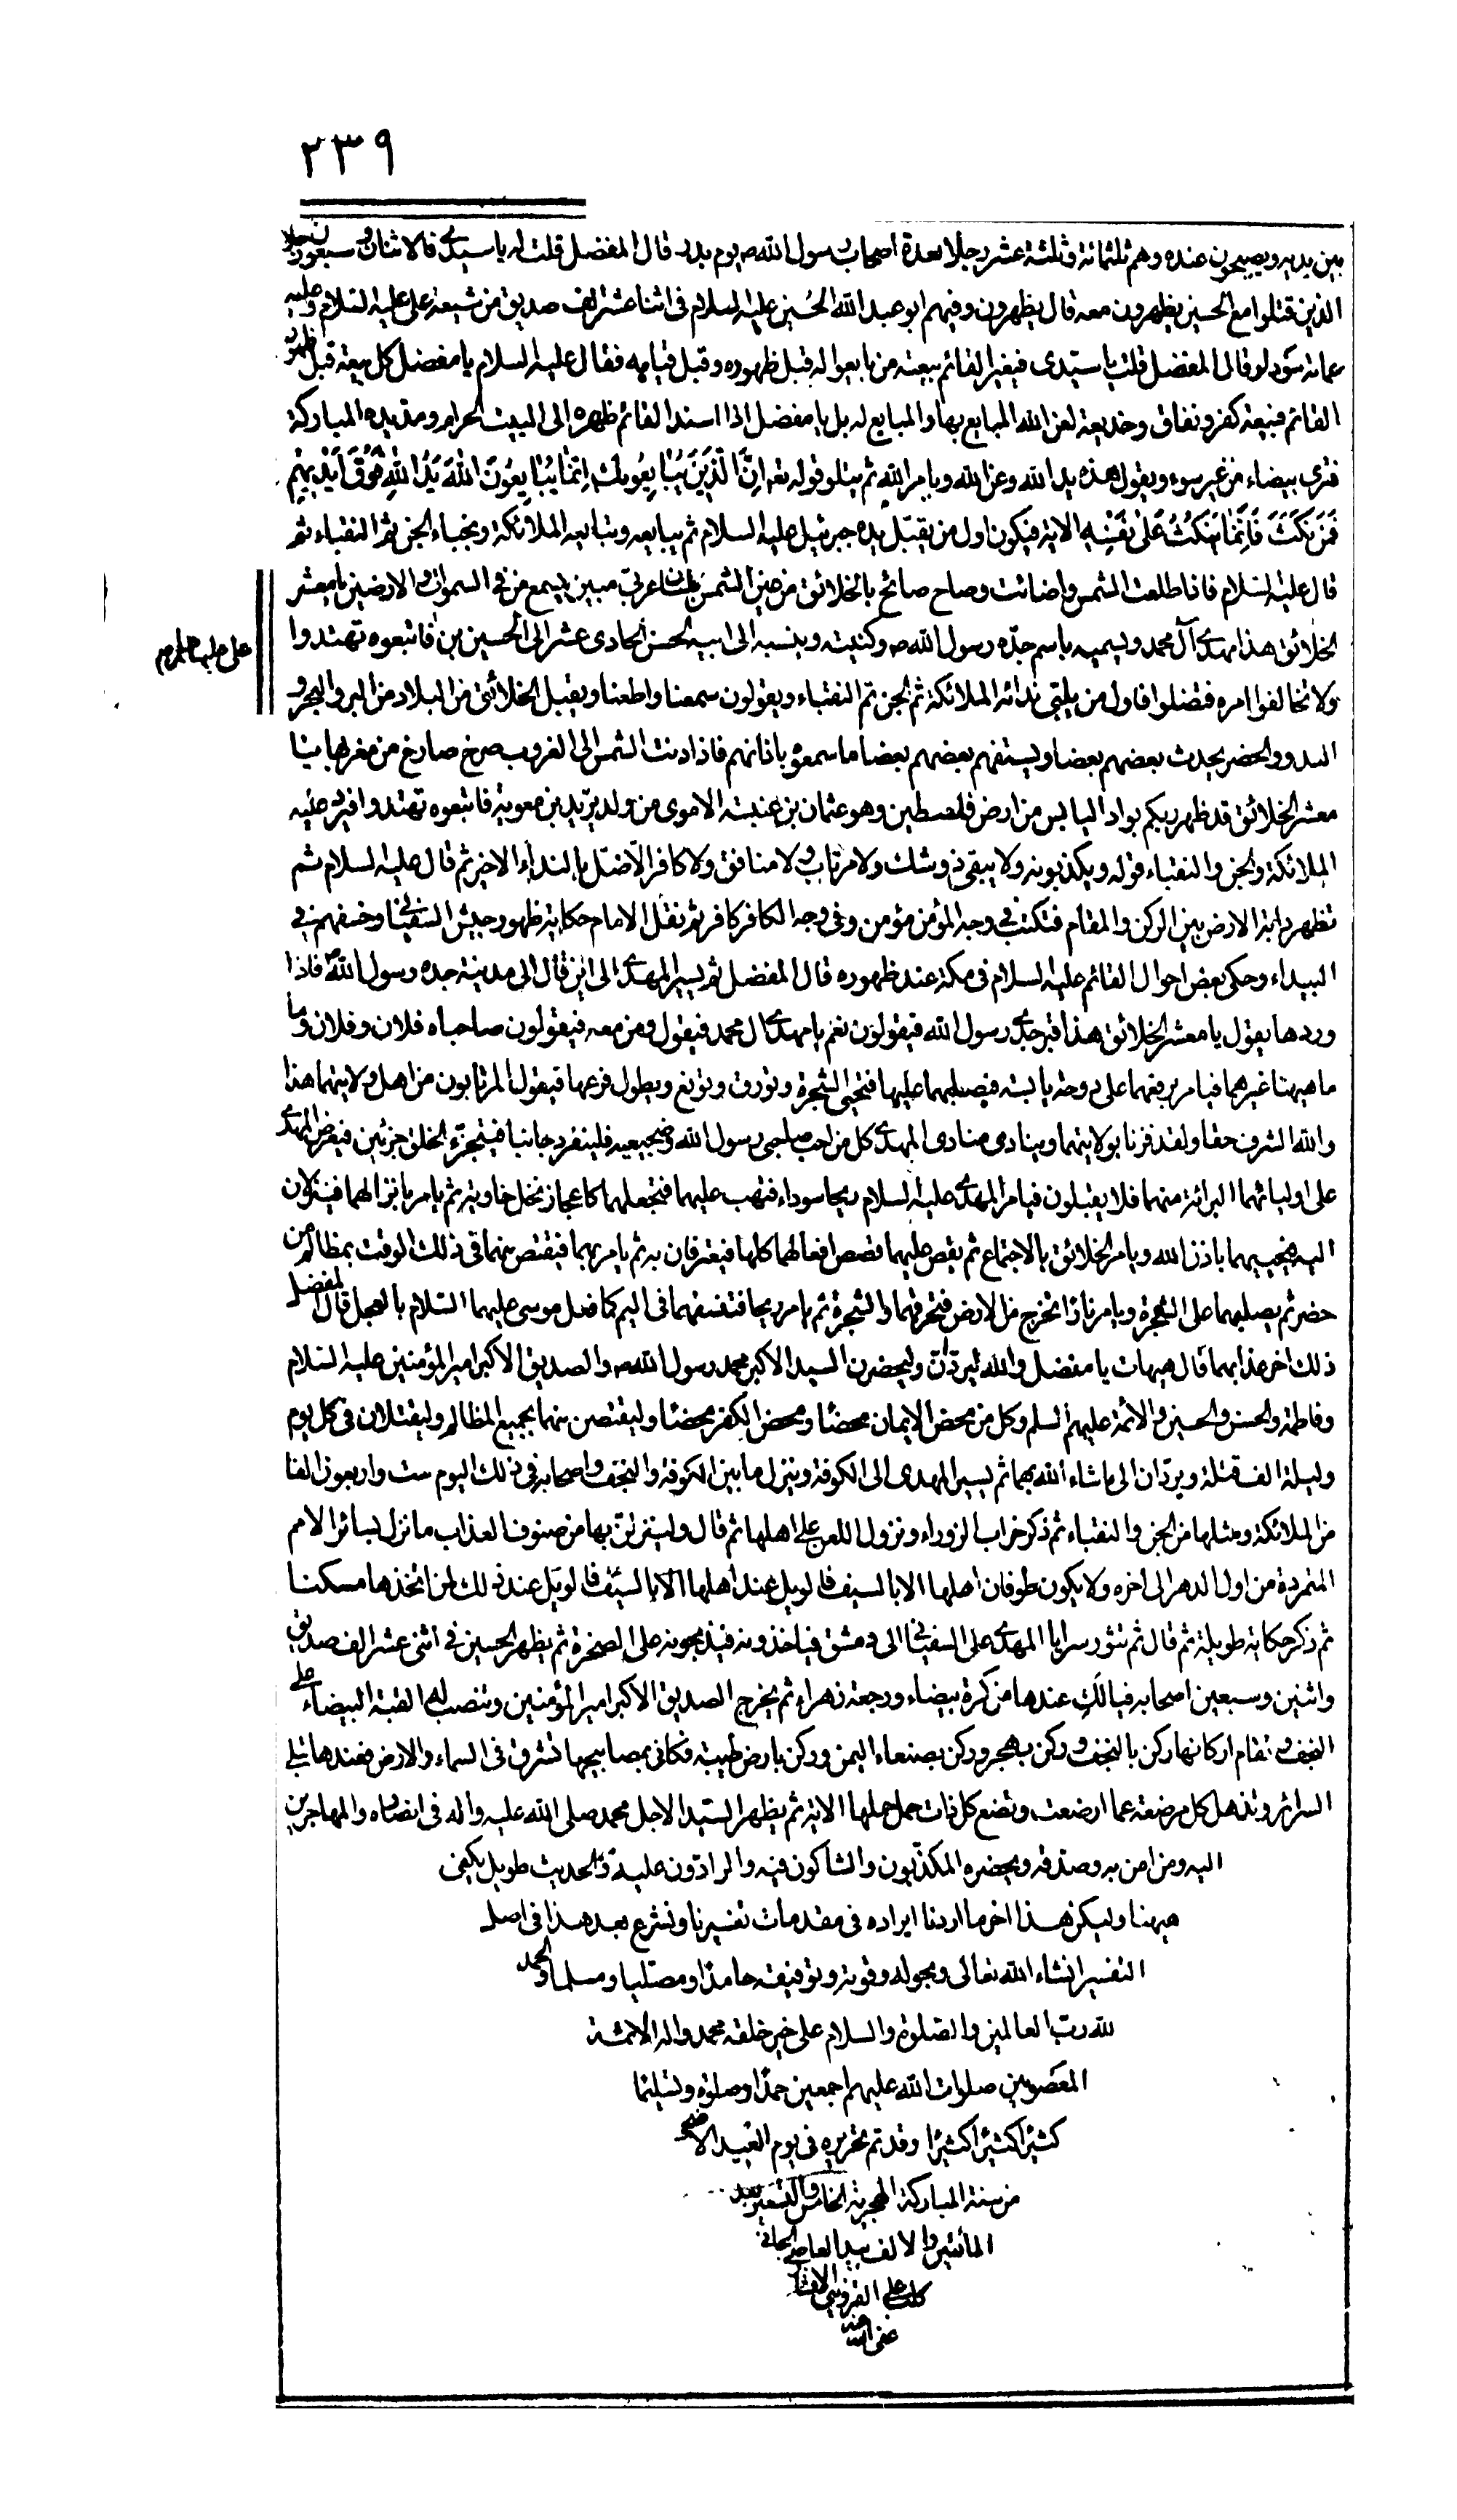 ٢٣٩
بين يديه ويصيحون عنده وهم ثلثمائة وثلثة عشر رجلا بعدة اصحاب رسول الله ص يوم بدر قال المفضل قلت له يا سيدي فالاثنان وسبعون رجلا
الذين قتلوا مع الحسين يظهرون معه قال يظهرون وفيهم ابو عبد الله الحسين عليه السلام فى اثنا عشر الف صديق من شيعة على عليه السلام وعليه
عمامة سوداء قال المفضل قلت يا سيدى فيغير القائم بيعته من بايعوا له قبل ظهوره وقبل قيامه فقال عليه السلام يا مفضل كل بيعة قبل ظهور
القائم فبيعة كفر ونفاق وخديعة لعن الله المبايع بها والمبايع له بل يا مفضل اذا اسند القائم ظهره الى البيت الحرام ومد يده المباركة
فترى بيضاء من غير سوء ويقول هذه يد الله وعن الله وبامر الله ثم يتلو قوله تع اِنَّ الَّذِينَ يُبَايِعُونَكَ اِنَّمَا يُبَايِعُونَ اللهَ يَدُ اللهِ فَوْقَ اَيْدِيهِمْ
فَمَنْ نَكَثَ فَاِنَّمَا يَنْكُثُ عَلٰى نَفْسِهِ الاية فيكون اول من يقبّل يده جبرئيل عليه السلام ثم يبايعه وتبايعه الملائكة ونجباء الجن ثم النقباء ثم
قال عليه السلام فاذا طلعت الشمس واضائت وصاح صائح بالخلائق من عين الشمس بلسان عربى مبين يسمع من فى السموات والارضين يا معشر
الخلائق هذا مهدي آل محمد ويسميه باسم جده رسول الله ص وكنيته وينسبه الى ابيه الحسن الحادى عشر الى الحسين بن فاتبعوه تهتدوا
على عليهم السلم
ولا تخالفوا امره فتضلوا فاول من يلبى ندائه الملائكة ثم الجن ثم النقباء ويقولون سمعنا واطعنا ويقبل الخلائق من البلاد من البر والبحر و
البدو والحضر يحدث بعضهم بعضا ويستفهم بعضهم بعضا ما سمعوه باذانهم فاذا دنت الشمس الى الغروب صرخ صارخ من مغربها يا
معشر الخلائق قد ظهر ربكم بواد اليابس من ارض فلسطين وهو عثمان بن عنبسة الاموى من ولد يزيد بن معوية فاتبعوه تهتدوا فيرد عليه
الملائكة والجن والنقباء قوله ويكذبونه ولا يبقى ذو شك ولا مرتاب ولا منافق ولا كافر الّا ضلّ بالنداء الاخير ثم قال عليه السلام ثم
تظهر دابة الارض بين الركن والمقام فتكتب فى وجه المؤمن مؤمن وفى وجه الكافر كافر ثم نقل الامام حكاية ظهور جيش السفيانى وخسفهم فى
البيداء وحكى بعض احوال القائم عليه السلام فى مكة عند ظهوره قال المفضل ثم يسير المهدي الى اين قال الى مدينة جده رسول الله ص فاذا
وردها يقول يا معشر الخلائق هذا قبر جدي رسول الله فيقولون نعم يا مهدي ال محمد فيقول ومن معه فيقولون صاحباه فلان وفلان وما
ما هيهنا غيرهما فيامر برفعهما على دوحة يابسة فيصلبهما عليها فتحيى الشجرة وتورق وتونع ويطول فرعها فيقول المرتابون من اهل ولايتهما هذا
والله الشرف حقا ولقد فزنا بولايتهما وينادى منادى المهدي كل من احب صاحبى رسول الله وضجيعيه فلينفرد جانبا فيتجزّء الخلق جزئين فيعرض المهدي
على اوليائهما البرائة منهما فلا يقبلون فيامر المهدي عليه السلام ريحا سوداء فتهب عليهما فتجعلهما كاعجاز نخل خاوية ثم يامر بانزالهما فينزلان
اليه فيحييهما باذن الله ويامر الخلائق بالاجتماع ثم يقص عليهما قصص افعالهما كلها فيعترفان به ثم يامر بهما فيقتص منهما فى ذلك الوقت بمظالم من
حضر ثم يصلبهما على الشجرة ويامر نارا تخرج من الارض فتحرقهما والشجرة ثم يامر ريحا فتنسفهما فى اليم كما فعل موسى عليهما السلام بالعجل قال المفضل
ذلك اخر عذابهما قال هيهات يا مفضل والله ليردّان وليحضرن السيد الاكبر محمد رسول الله ص والصديق الاكبر امير المؤمنين عليه السلام
وفاطمة والحسن والحسين والائمة عليهم السلم وكل من محض الايمان محضًا ومحض الكفر محضًا وليقتصن منهما بجميع المظالم وليقتلان فى كل يوم
وليلة الف قتلة ويردّان الى ما شاء الله بهما ثم يسير المهدى الى الكوفة وينزل ما بين الكوفة والنجف واصحابه فى ذلك اليوم ست واربعون الفا
من الملائكة ومثلها من الجن والنقباء ثم ذكر خراب الزوراء ونزول اللعن على اهلها ثم قال ولينزلنّ بها من صنوف العذاب ما نزل بسائر الامم
المتمردة من اول الدهر الى اخره ولا يكون طوفان اهلها الا بالسيف فالويل عند اهلها الا بالسيف فالويل عند ذلك لمن اتخذها مسكنا
ثم ذكر حكاية طويلة ثم قال ثم تثور سرايا المهدي على السفيانى الى دمشق فياخذونه فيذبحونه على الصخرة ثم يظهر الحسين فى اثنى عشر الف صديق
واثنين وسبعين اصحابه فيالَكِ عندها من كرة بيضاء ورجعة زهراء ثم يخرج الصديق الاكبر امير المؤمنين وتنصب له القبة البيضاء على
النجف وتقام اركانها ركن بالنجف وركن بهجر وركن بصنعاء اليمن وركن بارض طيبة فكانى بمصابيحها تشرق فى السماء والارض فعندها تبلى
السرائر وتذهل كل مرضعة عما ارضعت وتضع كل ذات حمل حملها الاية ثم يظهر السيد الاجل محمد صلى الله عليه واله فى انصاره والمهاجرين
اليه ومن امن به وصدقه ويحضره المكذّبون والشاكون فيه والرادّون عليه والحديث طويل يكفى
هيهنا وليكن هذا اخر ما اردنا ايراده فى مقدمات تفسيرنا ونشرع بعد هذا فى اصل
التفسير انشاء الله تعالى وبحوله وقوته وتوفيقه حامدًا ومصلّيا ومسلما والحمد
لله رب العالمين والصلوة والسلام على خير خلقه محمد واله الائمة
المعصومين صلوات الله عليهم اجمعين حمدًا وصلوة وتسليمًا
كثيرًا كثيرًا كثيرًا وقد تم تحريره فى يوم العيد الاضحى
من سنة المباركة الهجرية الخامس والتسعين بعد
المأتين والالف بيد العاصى الجانى
كلب على القزوينى الافشار
عفى الله عنه